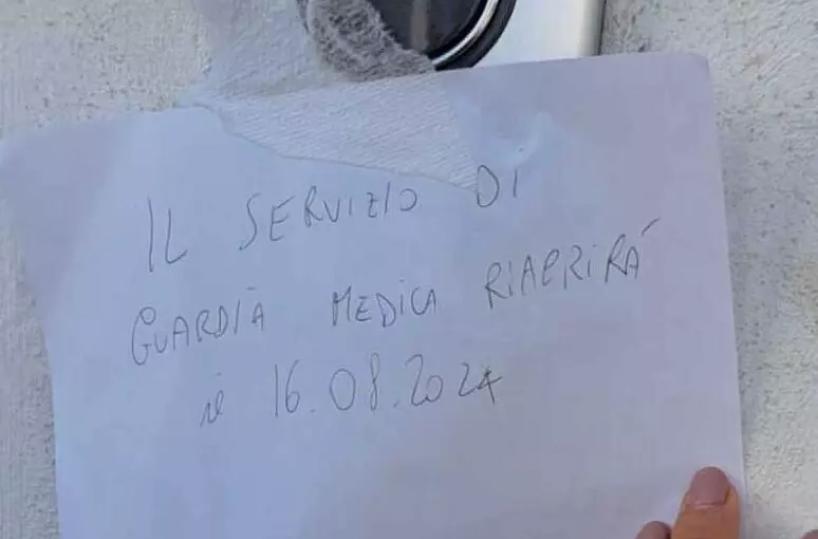 IL SERVIZIO DI
GUARDIA MEDICA RIAPRIRÁ
il 16.08.2024